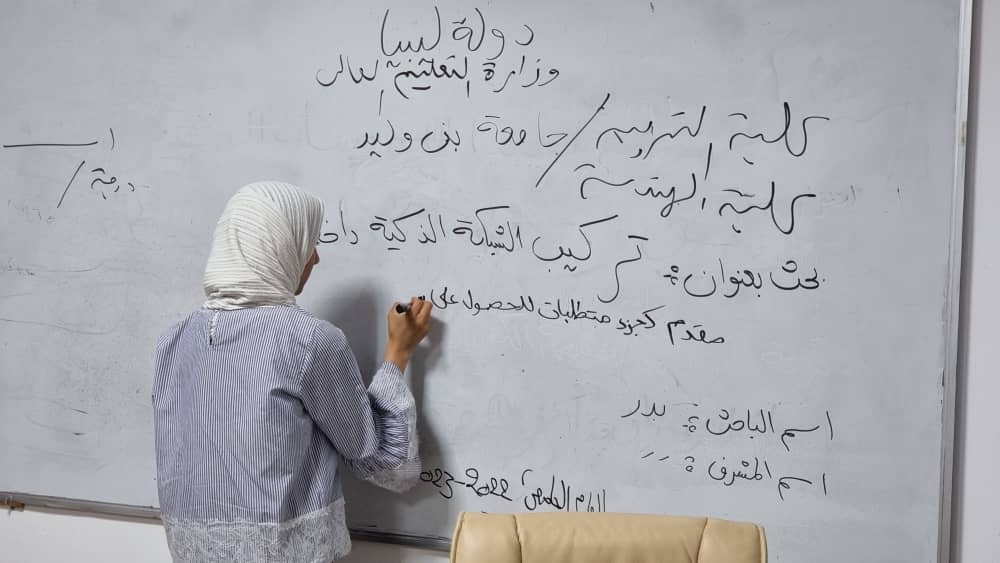 دولة ليبيا
وزارة التعليم العالي
كلية التربية / جامعة بني وليد
كلية الهندسة
بحث بعنوان: تركيب الشبكة الذكية
مقدم كجزء متطلبات للحصول على
اسم الباحث: بدر
اسم المشرف:
2022-023
درجة /